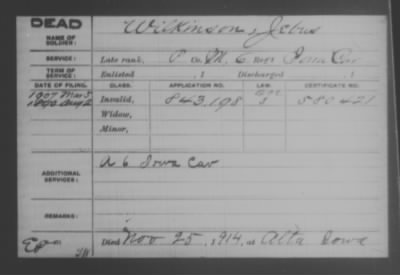 DEAD
NAME OF SOLDIER: Wilkinson, Jebus
SERVICE: Late rank, P Co. M, 6 Reg't Iowa Cav
TERM OF SERVICE: Enlisted , 1 Discharged , 1
DATE OF FILING. CLASS. APPLICATION NO. LAW. CERTIFICATE NO.
1907 Mar 5
1890 Aug 2 Invalid, 843.198 580421
Widow,
Minor,
ADDITIONAL SERVICES: A 6 Iowa Cav
REMARKS:
Died Nov 25, 1914, at Alta Iowa